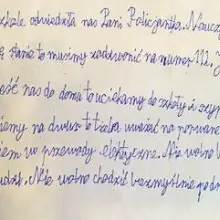 szkole odwiedziła nas Pani Policjantka. Naucz
stanie to musimy zadzwonić na numer 112. Z
nas do domu to uciekamy do szkoły i
na dworze to trzeba uważać na porwane
w przewody elektryczne. Nie wolno
Nie wolno chodzić bezmyślnie